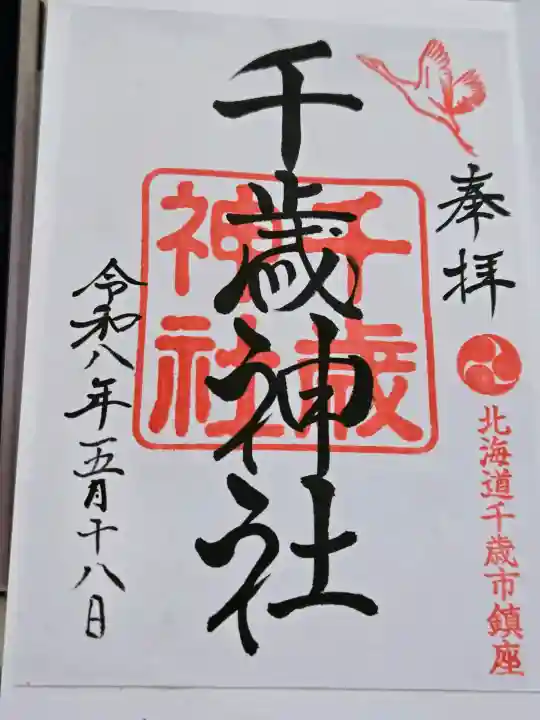 奉拝
北海道千歳市鎮座
千歳神社
千歳神社
令和八年五月十八日